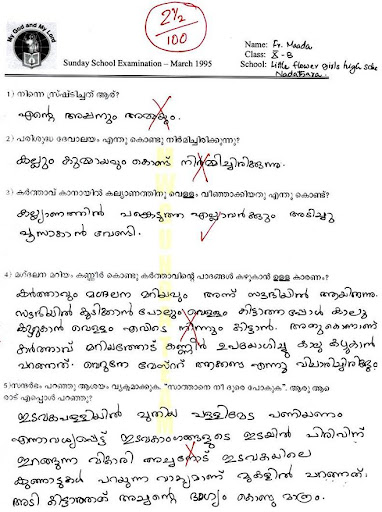 My God and My Lord
2½
100
Sunday School Examination – March 1995
Name: Fr. Maada
Class: X - B
School: Little flower girls high school
Nadathara.
1) നിന്നെ സൃഷ്ടിച്ചത് ആര്?
എന്റെ അപ്പനും അമ്മയും.
2) പരിശുദ്ധ ദേവാലയം എന്തു കൊണ്ടു നിർമിച്ചിരിക്കുന്നു?
കല്ലും കുമ്മായവും കൊണ്ട് നിർമ്മിച്ചിരിക്കുന്നു.
3) കർത്താവ് കാനായിൽ കല്യാണത്തിനു വെള്ളം വീഞ്ഞാക്കിയതു എന്തു കൊണ്ട്?
കല്യാണത്തിൽ പങ്കെടുത്ത എല്ലാവർക്കും അടിച്ചു
പൂസാകാൻ വേണ്ടി.
4) മഗ്ദലന മറിയം കണ്ണീർ കൊണ്ടു കർത്താവിന്റെ പാദങ്ങൾ കഴുകാൻ ഉള്ള കാരണം?
കർത്താവും മഗ്ദലന മറിയവും അന്ന് സൗദിയിൽ ആയിരുന്നു.
സൗദിയിൽ കുടിക്കാൻ പോലും വെള്ളം കിട്ടാത്തപ്പോൾ കാലു
കഴുകാൻ വെള്ളം എവിടെ നിന്നും കിട്ടാൻ. അതുകൊണ്ടാണ്
കർത്താവ് മറിയത്തോട് കണ്ണീർ ഉപയോഗിച്ചു കാലു കഴുകാൻ
പറഞ്ഞത്. വെറുതേ വേസ്റ്റ് ആക്കണ്ട എന്നു വിചാരിച്ചിരിക്കും
5) സന്ദർഭം പറഞ്ഞു ആശയം വ്യക്തമാക്കുക. "സാത്താനെ നീ ദൂരെ പോകുക". ആരു ആരോട് എപ്പൊൾ പറഞ്ഞു?
ഇടവകപള്ളിയിൽ പുതിയ പള്ളിമേട പണിയണം
എന്നാവശ്യപ്പെട്ട് ഇടവകാംഗങ്ങളുടെ ഇടയിൽ പിരിവിന്
ഇറങ്ങുന്ന വികാരി അച്ചനോട് ഇടവകയിലെ
കുഞ്ഞാടുകൾ പറയുന്ന വാക്യമാണ് മുകളിൽ പറഞ്ഞത്.
അടി കിട്ടാത്തത് അച്ചന്റെ ഭാഗ്യം കൊണ്ടു മാത്രം.